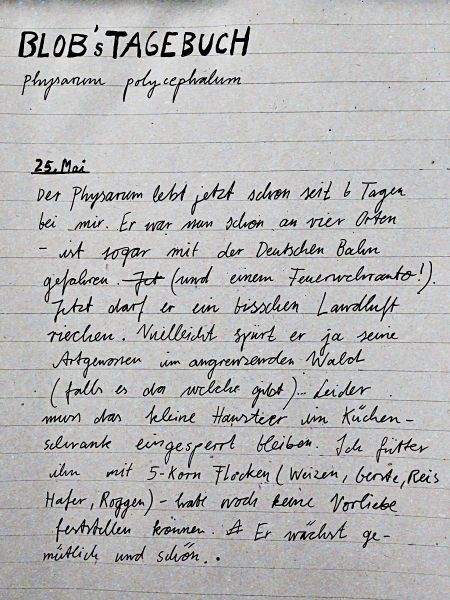 BLOB's TAGEBUCH
Physarum polycephalum
25. Mai
Der Physarum lebt jetzt schon seit 6 Tagen
bei mir. Er war nun schon an vier Orten
- ist sogar mit der Deutschen Bahn
gefahren. Jet (und einem Feuerwehrauto!).
Jetzt darf er ein bisschen Landluft
riechen. Vielleicht spürt er ja seine
Artgenossen im angrenzenden Wald
(falls es da welche gibt)... Leider
muss das kleine Haustier im Küchen-
schrank eingesperrt bleiben. Ich fütter
ihn mit 5-Korn Flocken (Weizen, Gerste, Reis
Hafer, Roggen) - hab noch keine Vorliebe
feststellen können. Er wächst ge-
mütlich und schön..